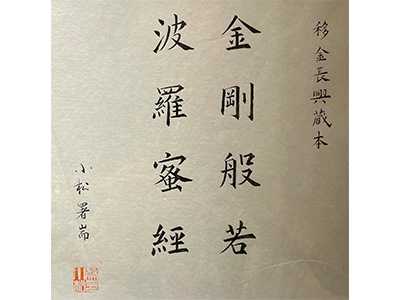 移金長興藏本
金剛般若
波羅蜜經
小松署耑